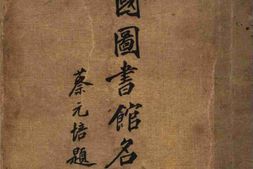 國圖書館名
蔡元培題